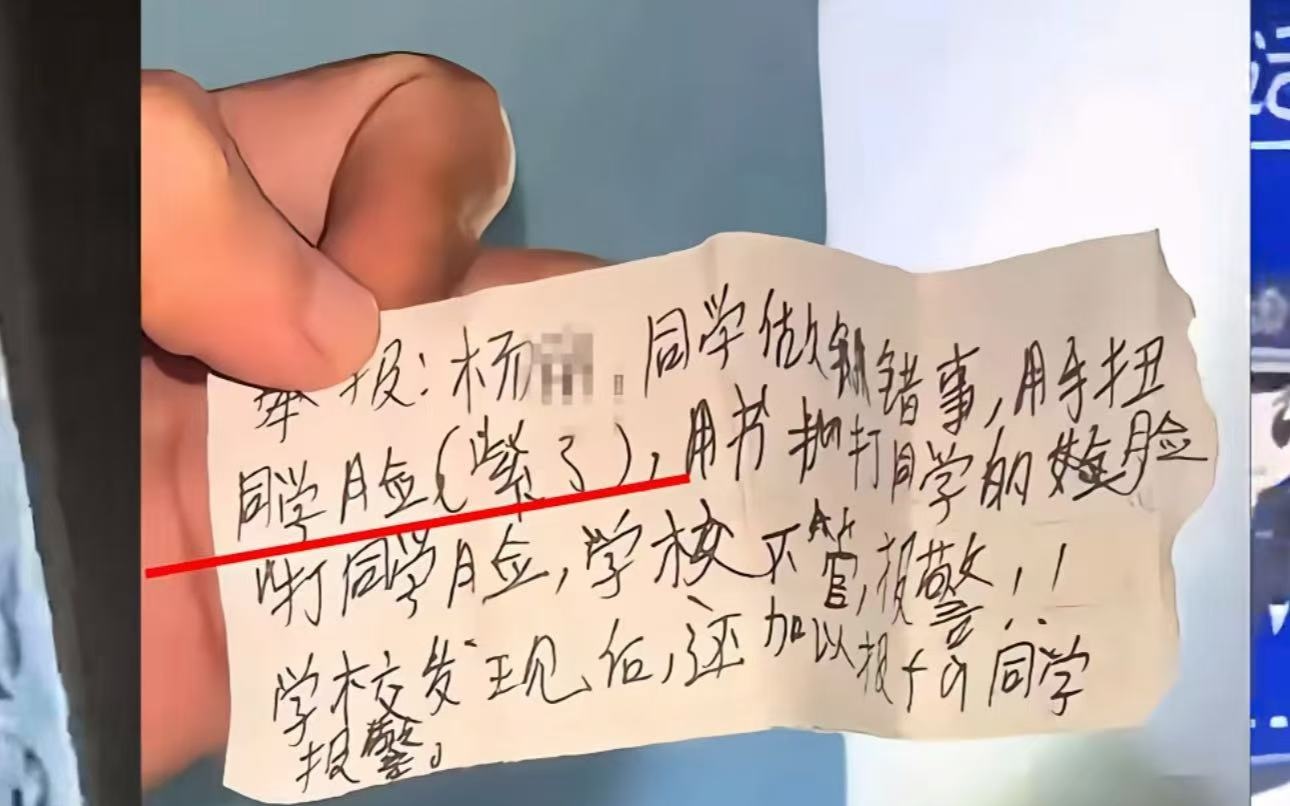 举报:杨 同学做错事,用手扭
同学脸(紫了),用书打同学的脸
同学脸,学校不管,报警!!
学校发现后,还加以报同学
报警。